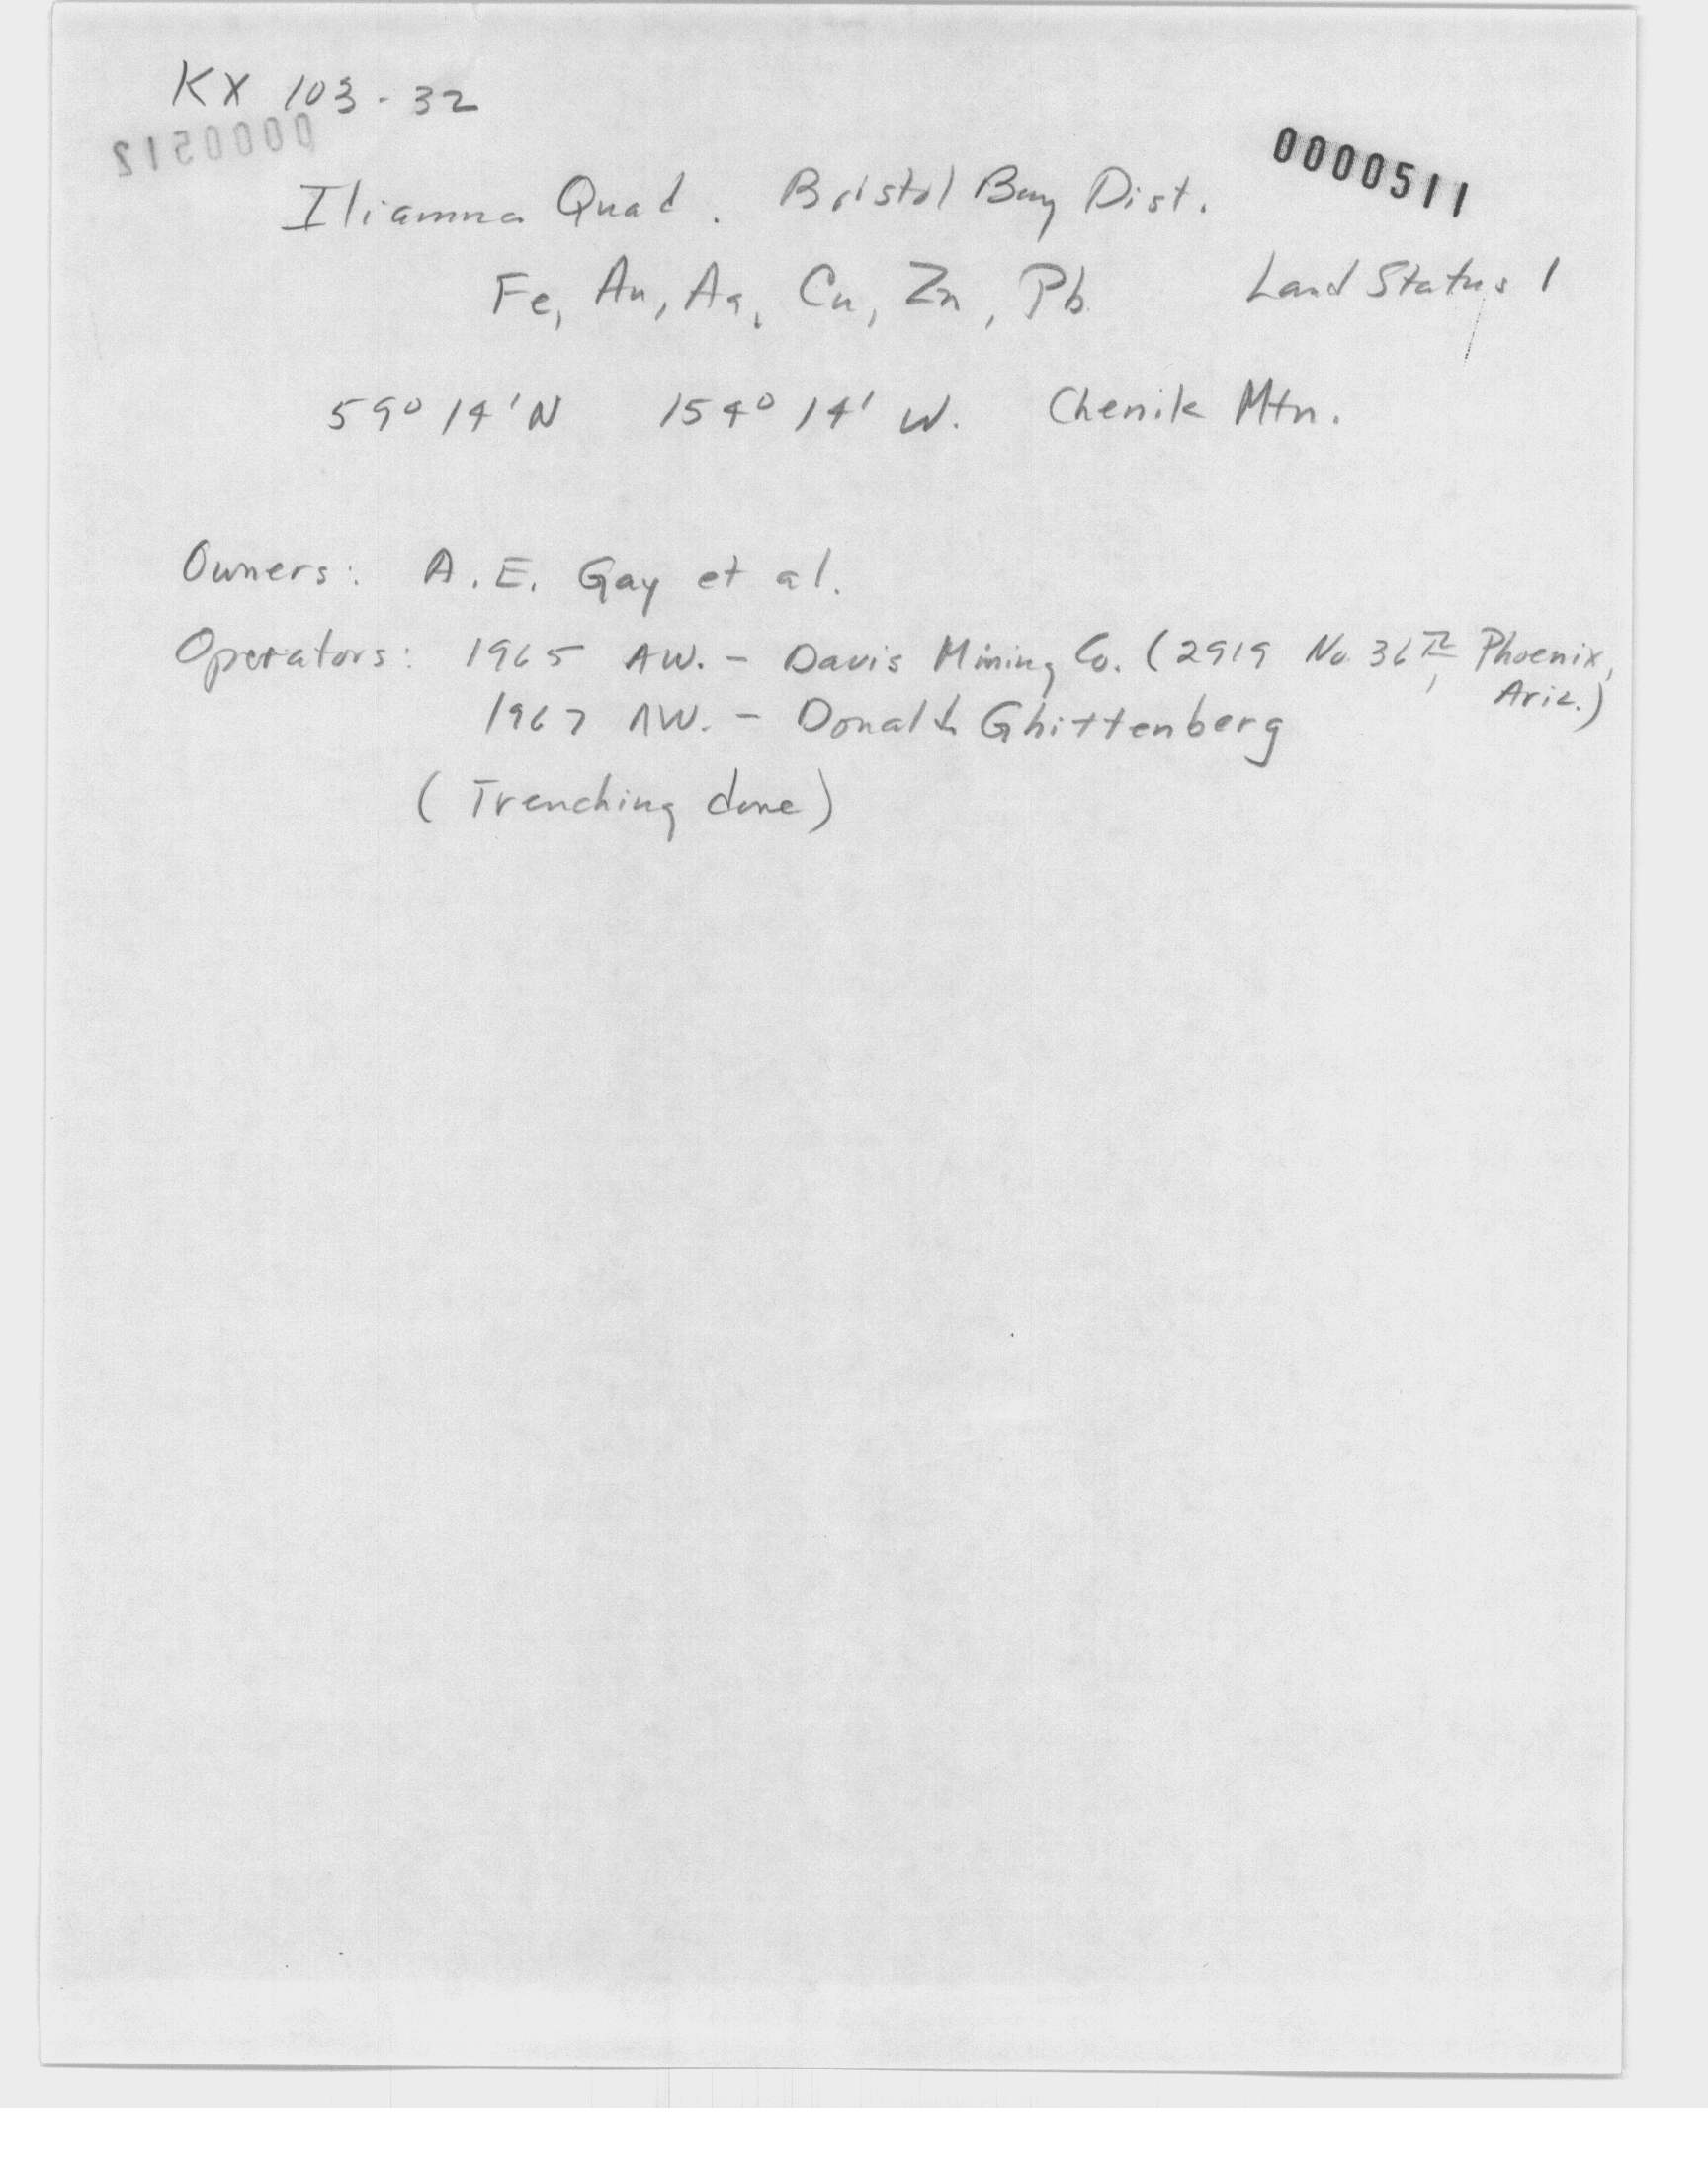 KX 103-32
0000512
0000511
Iliamna Quad. Bristol Bay Dist.
Fe, Au, Ag, Cu, Zn, Pb Land Status 1
59° 14' N 154° 14' W. Chenik Mtn.
Owners: A. E. Gay et al.
Operators: 1965 AW. - Davis Mining Co. (2919 No. 36th, Phoenix,
Ariz.)
1967 AW. - Donald Ghittenberg
(Trenching done)